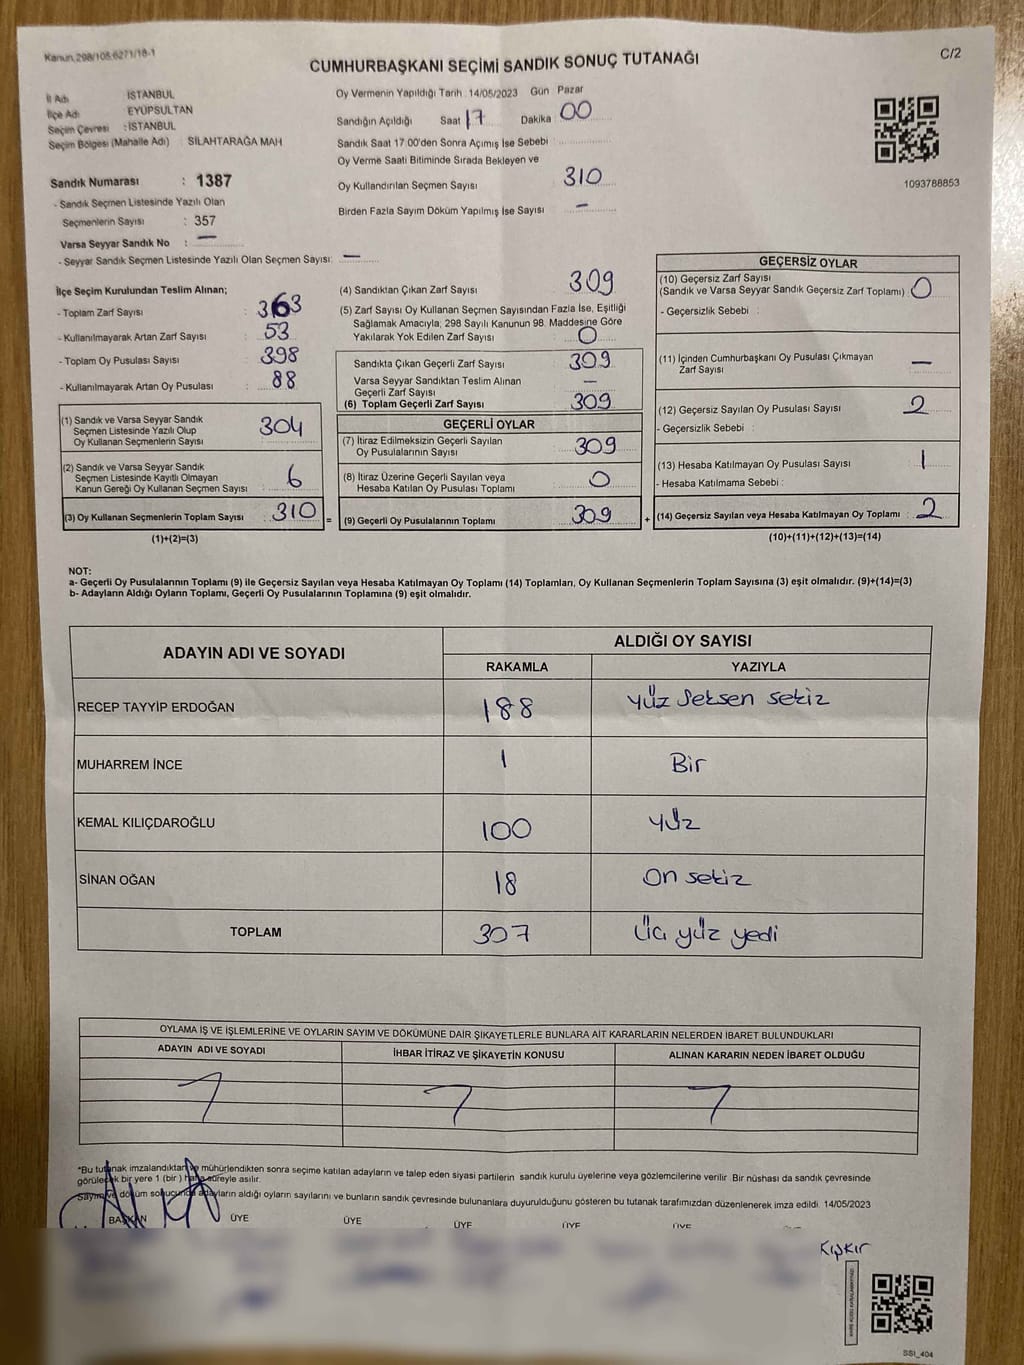 Kanun, 298/105,6271/18-1
C/2
CUMHURBAŞKANI SEÇİMİ SANDIK SONUÇ TUTANAĞI
İl Adı : İSTANBUL
İlçe Adı : EYÜPSULTAN
Seçim Çevresi : İSTANBUL
Seçim Bölgesi (Mahalle Adı) : SİLAHTARAĞA MAH
Sandık Numarası : 1387
- Sandık Seçmen Listesinde Yazılı Olan
Seçmenlerin Sayısı : 357
Varsa Seyyar Sandık No : —
- Seyyar Sandık Seçmen Listesinde Yazılı Olan Seçmen Sayısı: —
Oy Vermenin Yapıldığı Tarih : 14/05/2023 Gün Pazar
Sandığın Açıldığı Saat 17 Dakika 00
Sandık Saat 17.00'den Sonra Açımış İse Sebebi :
Oy Verme Saati Bitiminde Sırada Bekleyen ve
Oy Kullandırılan Seçmen Sayısı : 310
Birden Fazla Sayım Döküm Yapılmış İse Sayısı : —
1093788853
İlçe Seçim Kurulundan Teslim Alınan;
- Toplam Zarf Sayısı : 363
- Kullanılmayarak Artan Zarf Sayısı : 53
- Toplam Oy Pusulası Sayısı : 398
- Kullanılmayarak Artan Oy Pusulası : 88
(1) Sandık ve Varsa Seyyar Sandık
Seçmen Listesinde Yazılı Olup
Oy Kullanan Seçmenlerin Sayısı : 304
(2) Sandık ve Varsa Seyyar Sandık
Seçmen Listesinde Kayıtlı Olmayan
Kanun Gereği Oy Kullanan Seçmen Sayısı : 6
(3) Oy Kullanan Seçmenlerin Toplam Sayısı : 310 =
(1)+(2)=(3)
(4) Sandıktan Çıkan Zarf Sayısı : 309
(5) Zarf Sayısı Oy Kullanan Seçmen Sayısından Fazla İse, Eşitliği
Sağlamak Amacıyla; 298 Sayılı Kanunun 98. Maddesine Göre
Yakılarak Yok Edilen Zarf Sayısı : 0
Sandıkta Çıkan Geçerli Zarf Sayısı : 309
Varsa Seyyar Sandıktan Teslim Alınan
Geçerli Zarf Sayısı : —
(6) Toplam Geçerli Zarf Sayısı : 309
GEÇERLİ OYLAR
(7) İtiraz Edilmeksizin Geçerli Sayılan
Oy Pusulalarının Sayısı : 309
(8) İtiraz Üzerine Geçerli Sayılan veya
Hesaba Katılan Oy Pusulası Toplamı : 0
(9) Geçerli Oy Pusulalarının Toplamı : 309 +
GEÇERSİZ OYLAR
(10) Geçersiz Zarf Sayısı
(Sandık ve Varsa Seyyar Sandık Geçersiz Zarf Toplamı) : 0
- Geçersizlik Sebebi :
(11) İçinden Cumhurbaşkanı Oy Pusulası Çıkmayan
Zarf Sayısı : —
(12) Geçersiz Sayılan Oy Pusulası Sayısı : 2
- Geçersizlik Sebebi :
(13) Hesaba Katılmayan Oy Pusulası Sayısı : 1
- Hesaba Katılmama Sebebi :
(14) Geçersiz Sayılan veya Hesaba Katılmayan Oy Toplamı : 2
(10)+(11)+(12)+(13)=(14)
NOT:
a- Geçerli Oy Pusulalarının Toplamı (9) ile Geçersiz Sayılan veya Hesaba Katılmayan Oy Toplamı (14) Toplamları, Oy Kullanan Seçmenlerin Toplam Sayısına (3) eşit olmalıdır. (9)+(14)=(3)
b- Adayların Aldığı Oyların Toplamı, Geçerli Oy Pusulalarının Toplamına (9) eşit olmalıdır.
ADAYIN ADI VE SOYADI ALDIĞI OY SAYISI
RAKAMLA YAZIYLA
RECEP TAYYİP ERDOĞAN 188 Yüz Seksen sekiz
MUHARREM İNCE 1 Bir
KEMAL KILIÇDAROĞLU 100 yüz
SİNAN OĞAN 18 On sekiz
TOPLAM 307 Üç yüz yedi
OYLAMA İŞ VE İŞLEMLERİNE VE OYLARIN SAYIM VE DÖKÜMÜNE DAİR ŞİKAYETLERLE BUNLARA AİT KARARLARIN NELERDEN İBARET BULUNDUKLARI
ADAYIN ADI VE SOYADI İHBAR İTİRAZ VE ŞİKAYETİN KONUSU ALINAN KARARIN NEDEN İBARET OLDUĞU
*Bu tutanak imzalandıktan ve mühürlendikten sonra seçime katılan adayların ve talep eden siyasi partilerin sandık kurulu üyelerine veya gözlemcilerine verilir. Bir nüshası da sandık çevresinde
görülecek bir yere 1 (bir ) hafta süreyle asılır.
Sayım ve döküm sonucunda adayların aldığı oyların sayılarını ve bunların sandık çevresinde bulunanlara duyurulduğunu gösteren bu tutanak tarafımızdan düzenlenerek imza edildi. 14/05/2023
BAŞKAN ÜYE ÜYE ÜYE ÜYE ÜYE
SSI_404